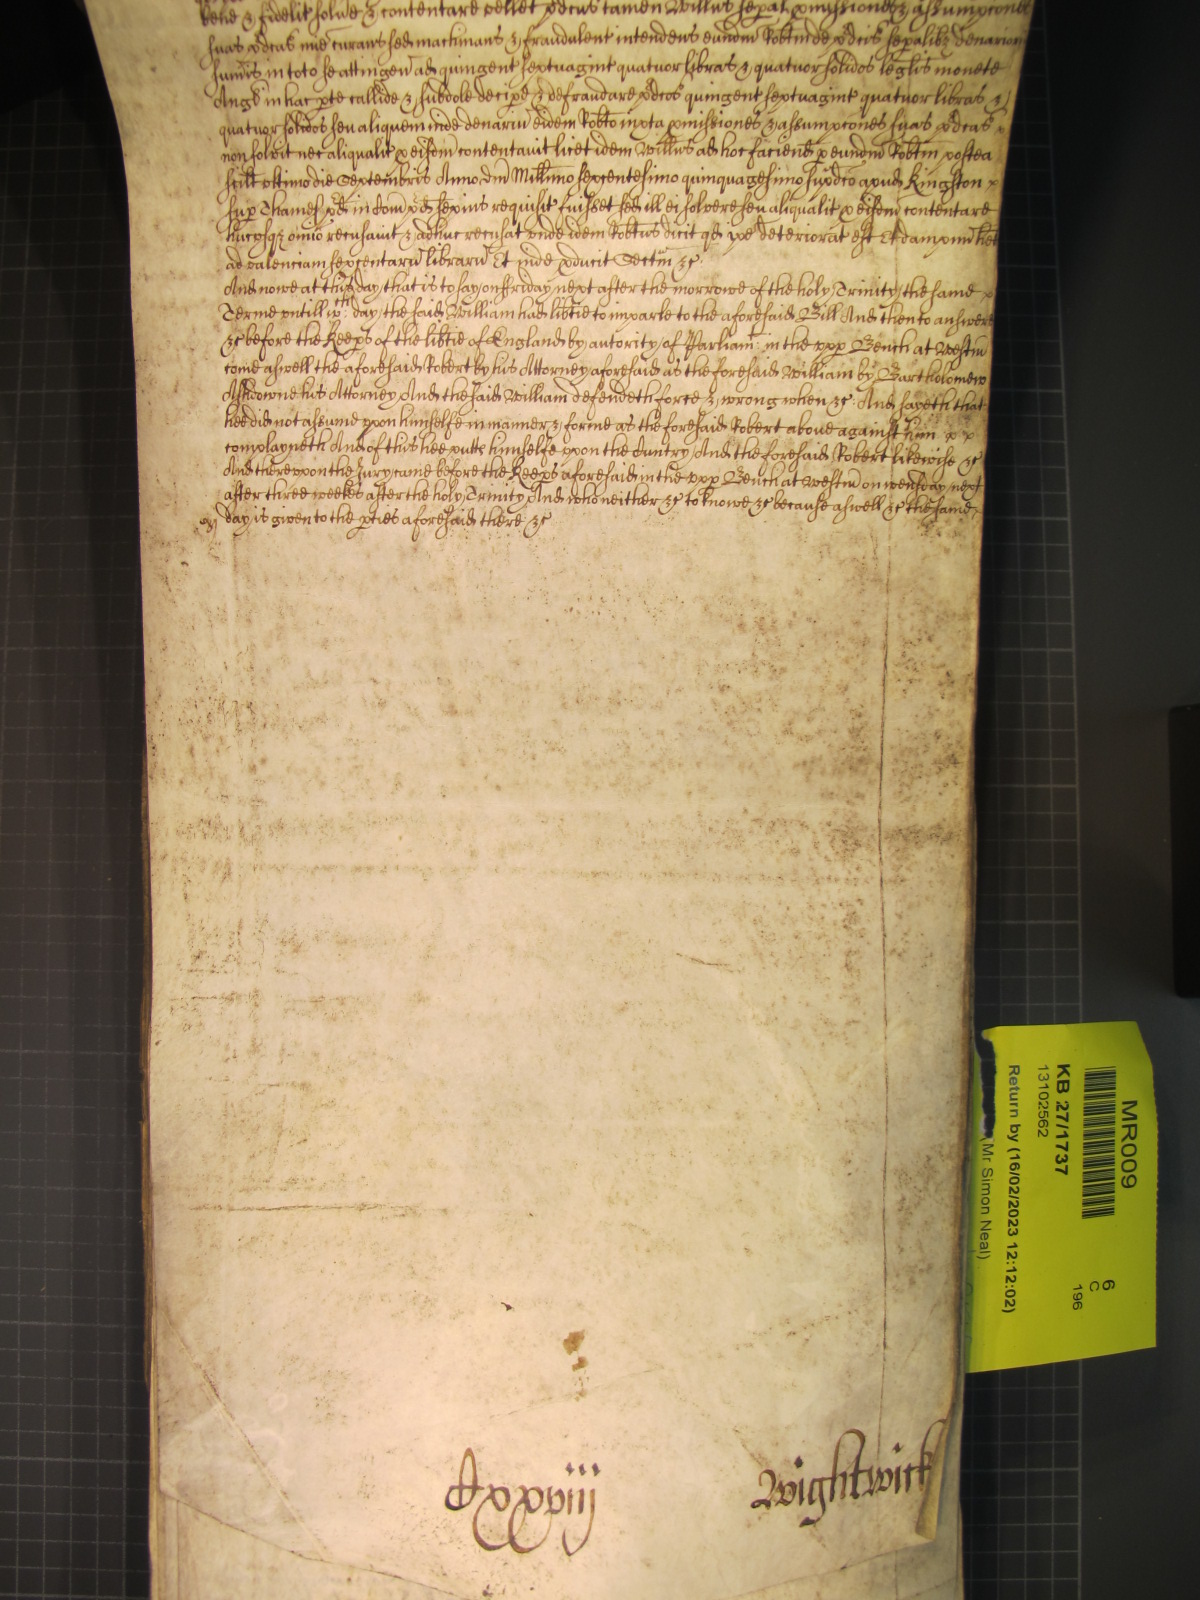 bene & fidelit solve & contentare vellet pdcus tamen Willus sepal pmissiones & assumpcones
suas pdcas mie curans sed machinans & fraudulent intendens eundm Robtm de pdcis sepalibz denarior
sumis in toto se attingen ad quingent septuagint quatuor libras & quatuor solidos leglis monete
Angl in hac pte callide & subdole decipe & defraudare pdcos quingent septuagint quatuor libras &
quatuor solidos seu aliquem inde denariu eidem Robto iuxta pmissiones & assumpcones suas pdcas
non solvit nec aliqualit p eisdem contentavit licet idem Willus ad hoc faciend p eundm Robtm postea
scilt ultimo die Septembris Anno dm Millimo sexcentesimo quinquagesimo supdco apud Kingston
sup Thames pd in Com pd sepius requisit fuisset sed ill ei solvere seu aliqualit p eisdem contentare
hucusqz omio recusavit & adhuc recusat unde idem Robtus dicit qd ipe deteriorat est Et dampnu het
ad valenciam sexcentaru libraru Et inde pducit Sectm &c
And nowe at this day, that is to say, on Friday next after the morrowe of the holy Trinity, the same
Terme untill wch day, the said William had libtie to imparle to the aforesaid Bill And then to answere
&c before the Keeps of the libtie of England by autority of Parliamt in the upp Bench at Westm
come aswell the aforesaid Robert by his Attorney aforesaid as the foresaid William by Bartholomew
Ashdowne his Attorney And the said William defendeth force & wrong when &c And sayeth that
hee did not assume upon himselfe in manner & forme as the foresaid Robert above against him
complayneth And of this hee putts himselfe upon the Cuntry And the foresaid Robert likewise &c
And thereupon the Jury, come before the Keeps aforesaid in the upp Bench at Westm on wensday next
after three weekes after the holy Trinity And who neither &c to knowe &c because aswell &c the same
day is given to the pties aforesaid there &c
dxxviij
Wightwick
MR009
6
C
196
KB 27/1737
13102562
Return by (16/02/2023 12:12:02)
(Mr Simon Neal)